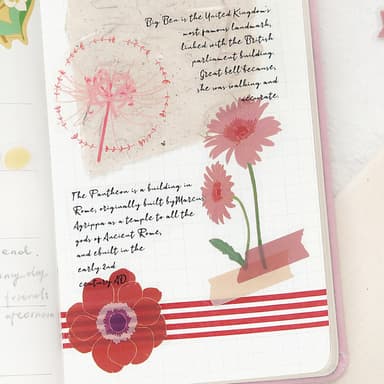 Big Ben is the United Kingdom's
most famous landmark,
linked with the British
parliament building.
Great bell because,
she was walking and
accurate.
The Pantheon is a building in
Rome, originally built by Marcus
Agrippa as a temple to all the
gods of Ancient Rome,
and ebuilt in the
early 2nd
century AD
end.
friends
afternoon